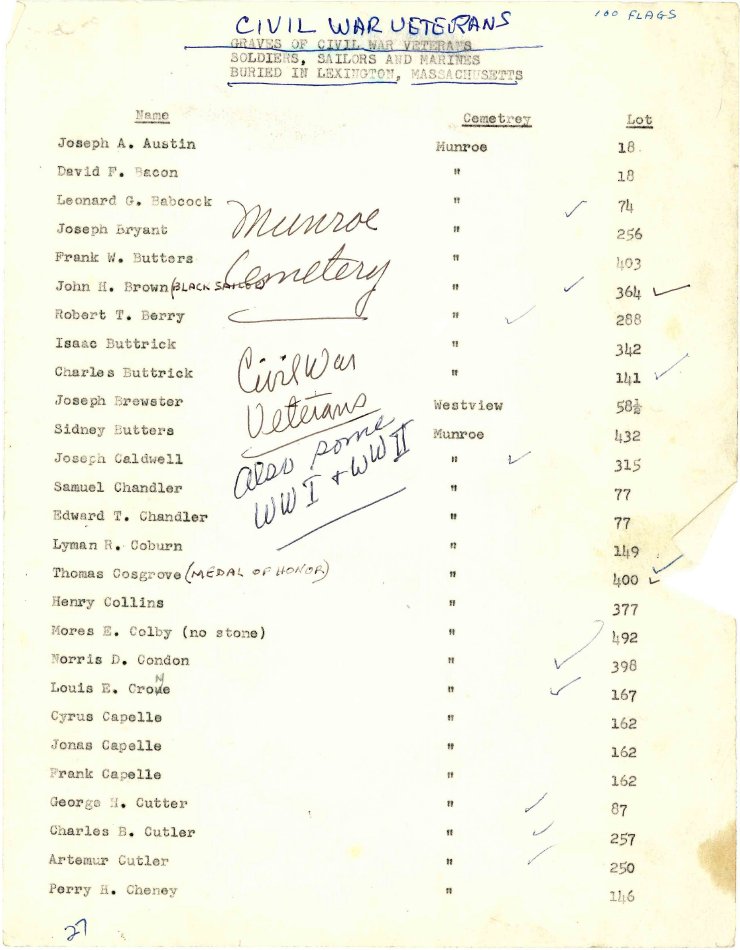 CIVIL WAR VETERANS
100 FLAGS
GRAVES OF CIVIL WAR VETERANS
SOLDIERS, SAILORS AND MARINES
BURIED IN LEXINGTON, MASSACHUSETTS
Name Cemetrey Lot
Joseph A. Austin Munroe 18
David F. Bacon " 18
Leonard G. Babcock " 74
Joseph Bryant " 256
Frank W. Butters " 403
John H. Brown (BLACK SAILOR) " 364
Robert T. Berry " 288
Isaac Buttrick " 342
Charles Buttrick " 141
Joseph Brewster Westview 58½
Sidney Butters Munroe 432
Joseph Caldwell " 315
Samuel Chandler " 77
Edward T. Chandler " 77
Lyman R. Coburn " 149
Thomas Cosgrove (MEDAL OF HONOR) " 400
Henry Collins " 377
Mores E. Colby (no stone) " 492
Norris D. Condon " 398
Louis E. Crone " 167
Cyrus Capelle " 162
Jonas Capelle " 162
Frank Capelle " 162
George H. Cutter " 87
Charles B. Cutler " 257
Artemur Cutler " 250
Perry H. Cheney " 146
Munroe
Cemetery
Civil War
Veterans
also some
WWI + WWII
27